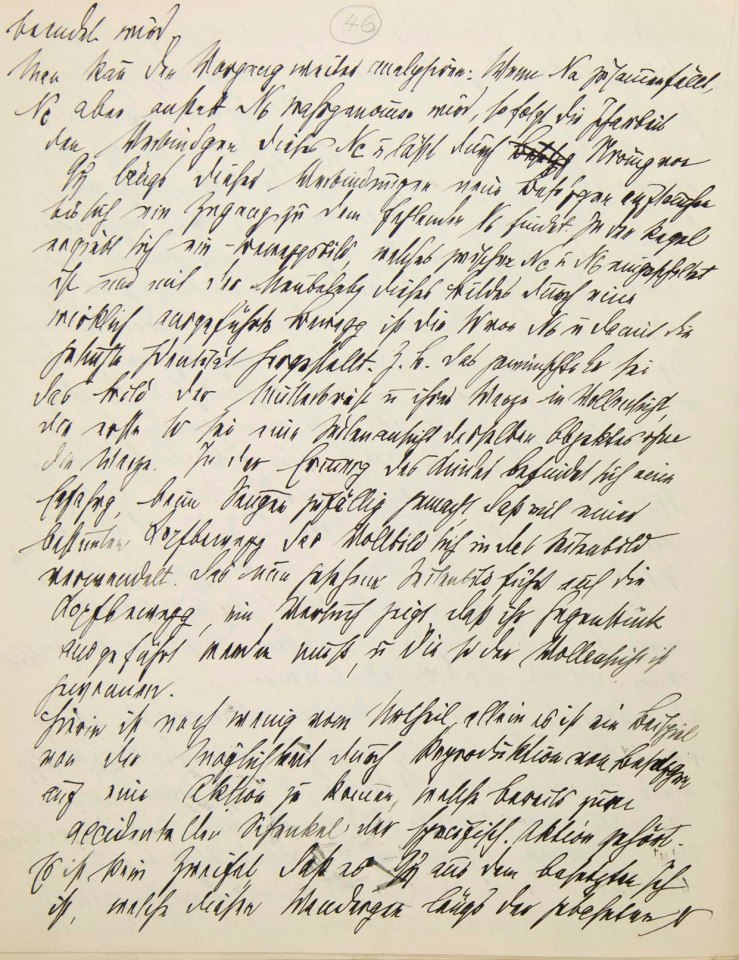 46
beendet wird
Man kann den Vorgang weiter analysiren: Wenn Na zusammenfällt,
Nc aber anstatt Nb wahrgenommen wird, so folgt die Icharbeit
den Verbindgen dieses Nc u läßt durch Strömung von
Qἠ längs dieser Verbindungen neue Besetzgen auftauchen
bis sich ein Zugang zu dem fehlenden Nb findet. In der Regel
ergiebt sich ein Beweggsbild welches zwischen Nc u Nb eingeschaltet
ist und mit der Neubelebg dieses Bildes durch eine
wirklich ausgeführte Bewegg ist die W von Nb u damit die
gesuchte Identität hergestellt. Z.B. das gewünschte Er sei
das Bild der Mutterbrust u ihrer Warze in Vollansicht,
die erste W sei eine Seitenansicht desselben Objektes ohne
die Warze. In der Erinnerg des Kindes befindet sich eine
Erfahrg, beim Saugen zufällig gemacht, daß mit einer
bestimmten Kopfbewegg das Vollbild sich in das Seitenbild
verwandelt. Das nun gesehene Seitenbild führt auf die
Kopfbewegg, ein Versuch zeigt, daß ihr Gegenstück
ausgeführt werden muß, u die W der Vollansicht ist
gewonnen.
Hierin ist noch wenig vom Urtheil, allein es ist ein Beispiel
von der Möglichkeit durch Reproduktion von Besetzgen
auf eine Aktion zu kommen, welche bereits zum
accidentellen Schenkel der specifisch. Aktion gehört.
Es ist kein Zweifel daß es Qἠ aus dem besetzten Ich
ist, welche diesen Wandergen längs der gebahnten N